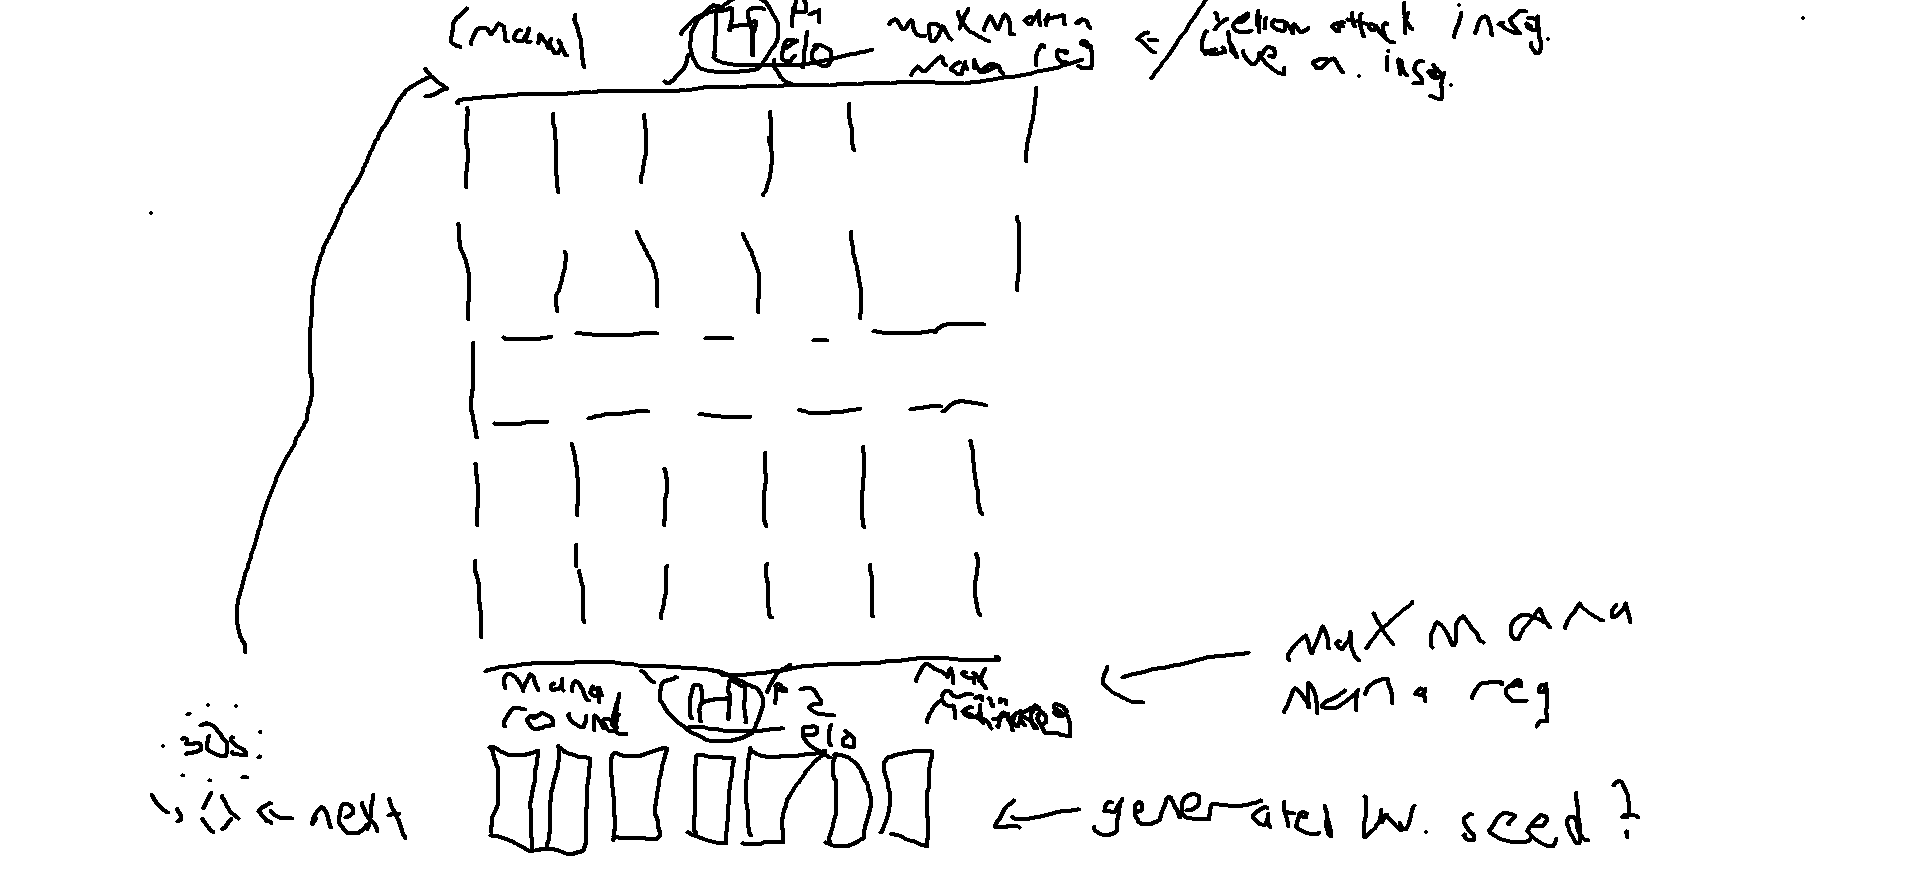 (mana)
H P1
elo
max mana
mana reg
attack insg.
a. insg.
mana
round
H P2
elo
max
max mana
mana reg
30s
next
generated w. seed?